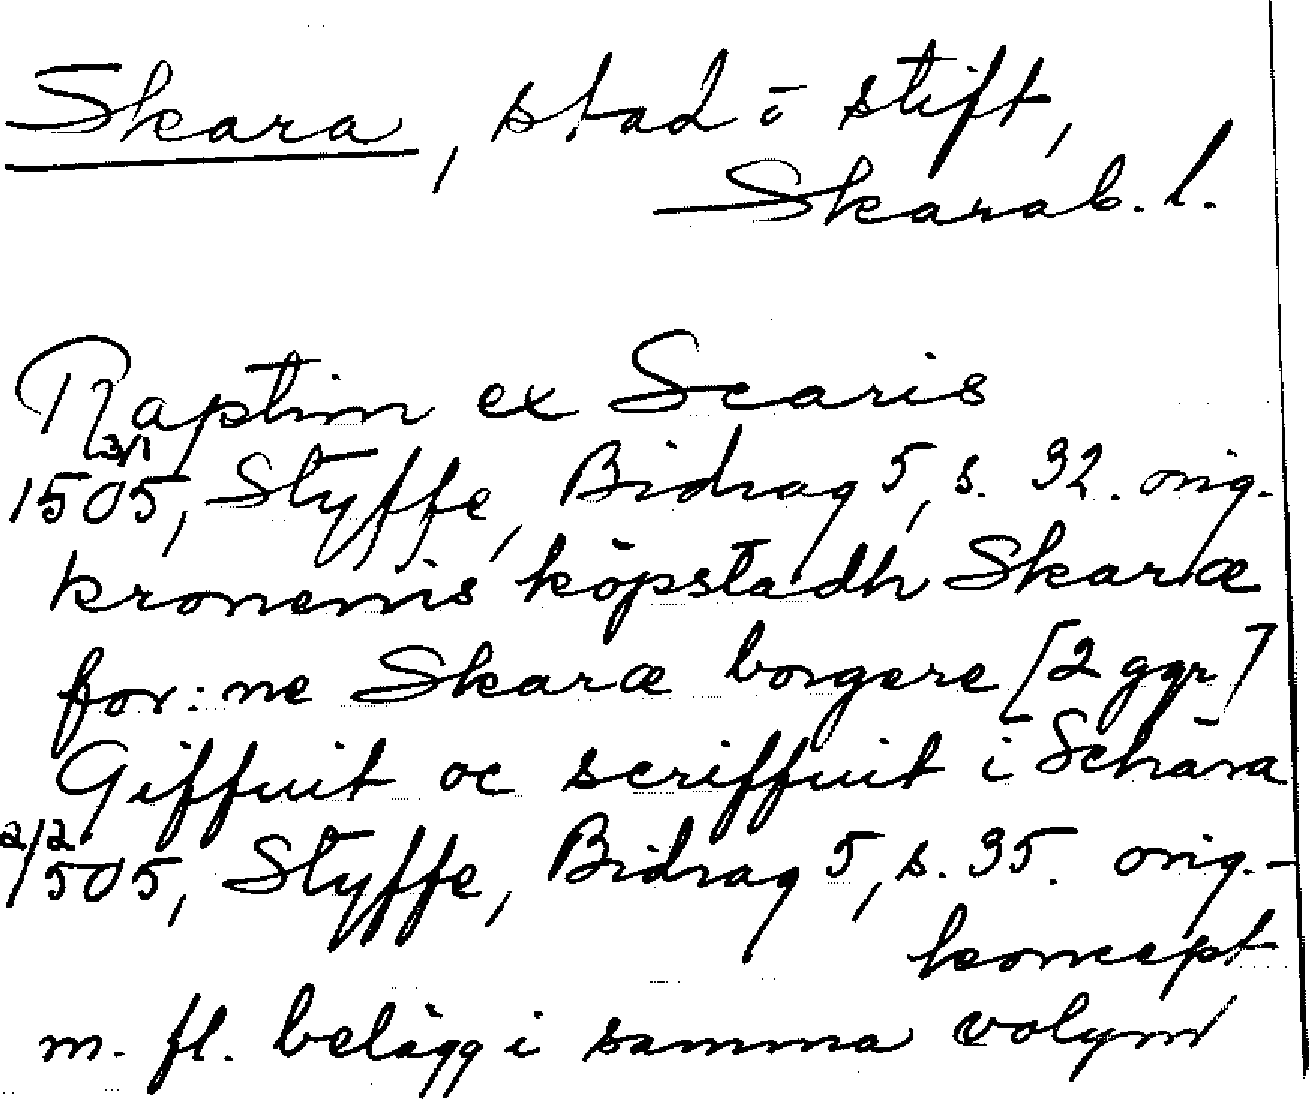 Skara, stad o stift,
Skarab. l.
Raptim ex Scaris
3/1
1505, Styffe, Bidrag 5, s. 32. orig.
kronennis köpstadh Skaræ
for:ne Skaræ borgere [2 ggr]
Giffuit oc scriffuit i Schara
2/2
1505, Styffe, Bidrag 5, s. 35. orig.-
koncept
m. fl. belägg i samma volym